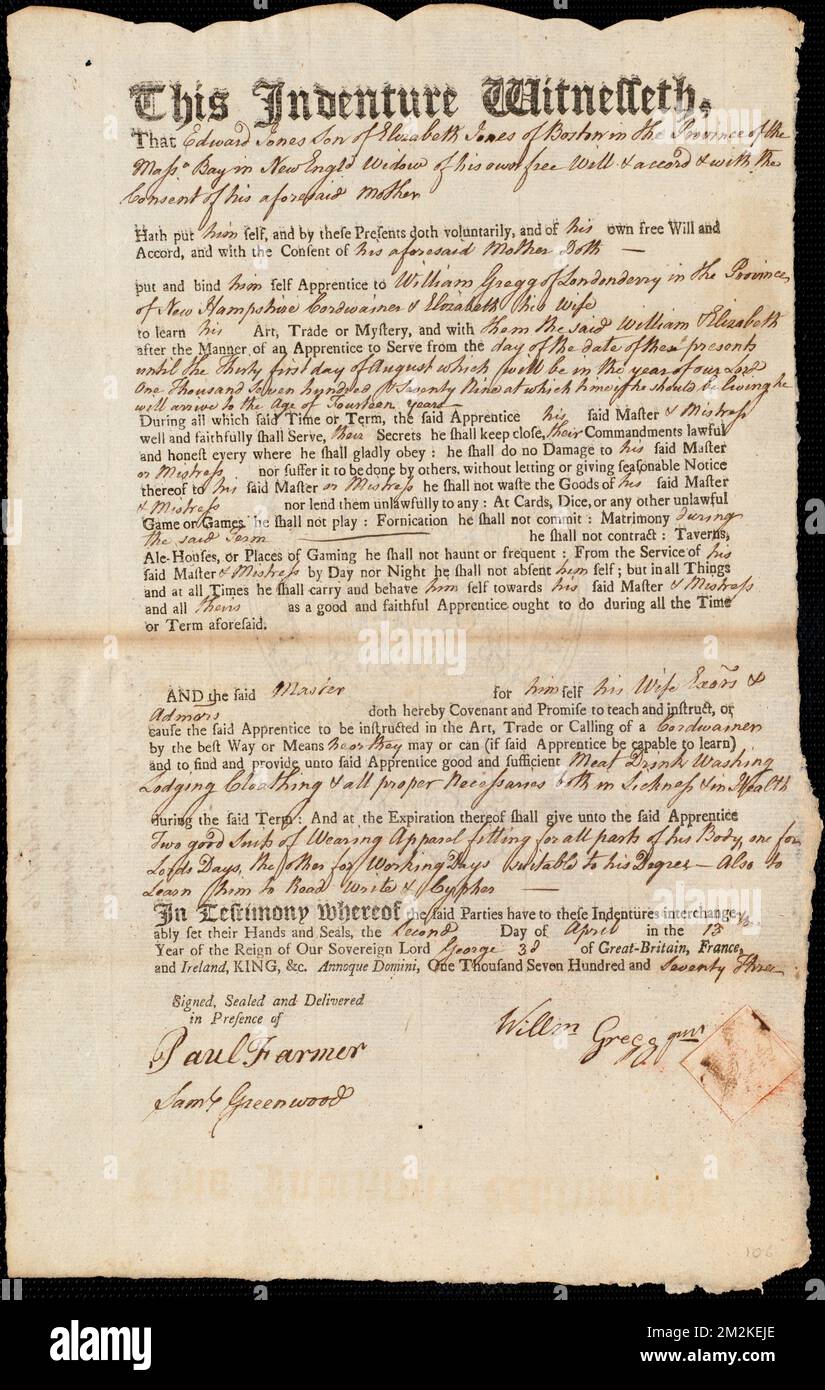 This Indenture Witnesseth,
That Edward Jones Son of Elizabeth Jones of Boston in the Province of the
Massa Bay in New Engld Widow of his own free Will & accord & with the
Consent of his aforesaid Mother
Hath put him self, and by these Presents doth voluntarily, and of his own free Will and
Accord, and with the Consent of his aforesaid Mother Doth —
put and bind him self Apprentice to William Gregg of Londonderry in the Province
of New Hampshire Cordwainer & Elizabeth his Wife
to learn his Art, Trade or Mystery, and with them the said William & Elizabeth
after the Manner of an Apprentice to Serve from the day of the date of these presents
until the Thirty first day of August which will be in the year of our Lord
One Thousand Seven hundred & Seventy Nine at which time if he should be living he
will arrive to the Age of Fourteen years —
During all which said Time or Term, the said Apprentice his said Master & Mistress
well and faithfully shall Serve, their Secrets he shall keep close, their Commandments lawful
and honest every where he shall gladly obey : he shall do no Damage to his said Master
or Mistress nor suffer it to be done by others, without letting or giving seasonable Notice
thereof to his said Master or Mistress he shall not waste the Goods of his said Master
& Mistress nor lend them unlawfully to any : At Cards, Dice, or any other unlawful
Game or Games he shall not play : Fornication he shall not commit : Matrimony during
the said Term — he shall not contract : Taverns,
Ale-Houses, or Places of Gaming he shall not haunt or frequent : From the Service of his
said Master & Mistress by Day nor Night he shall not absent him self ; but in all Things
and at all Times he shall carry and behave him self towards his said Master & Mistress
and all theirs as a good and faithful Apprentice ought to do during all the Time
or Term aforesaid.
AND the said Master for him self his Wife Exors &
Admors doth hereby Covenant and Promise to teach and instruct, or
cause the said Apprentice to be instructed in the Art, Trade or Calling of a Cordwainer
by the best Way or Means he or they may or can (if said Apprentice be capable to learn)
and to find and provide unto said Apprentice good and sufficient Meat Drink Washing
Lodging Cloathing & all proper Necessaries both in Sickness & in Health
during the said Term : And at the Expiration thereof shall give unto the said Apprentice
Two good Suits of Wearing Apparel fitting for all parts of his Body, one for
Lords Days, the other for Working Days suitable to his Degree — Also to
Learn him to Read Write & Cypher —
In Testimony Whereof the said Parties have to these Indentures interchange-
ably set their Hands and Seals, the Second Day of April in the 13th
Year of the Reign of Our Sovereign Lord George 3d of Great-Britain, France,
and Ireland, KING, &c. Annoque Domini, One Thousand Seven Hundred and Seventy Three
Signed, Sealed and Delivered
in Presence of
Willm Gregg
Paul Farmer
Saml Greenwood
106
alamy
Image ID: 2M2KEJE
www.alamy.com